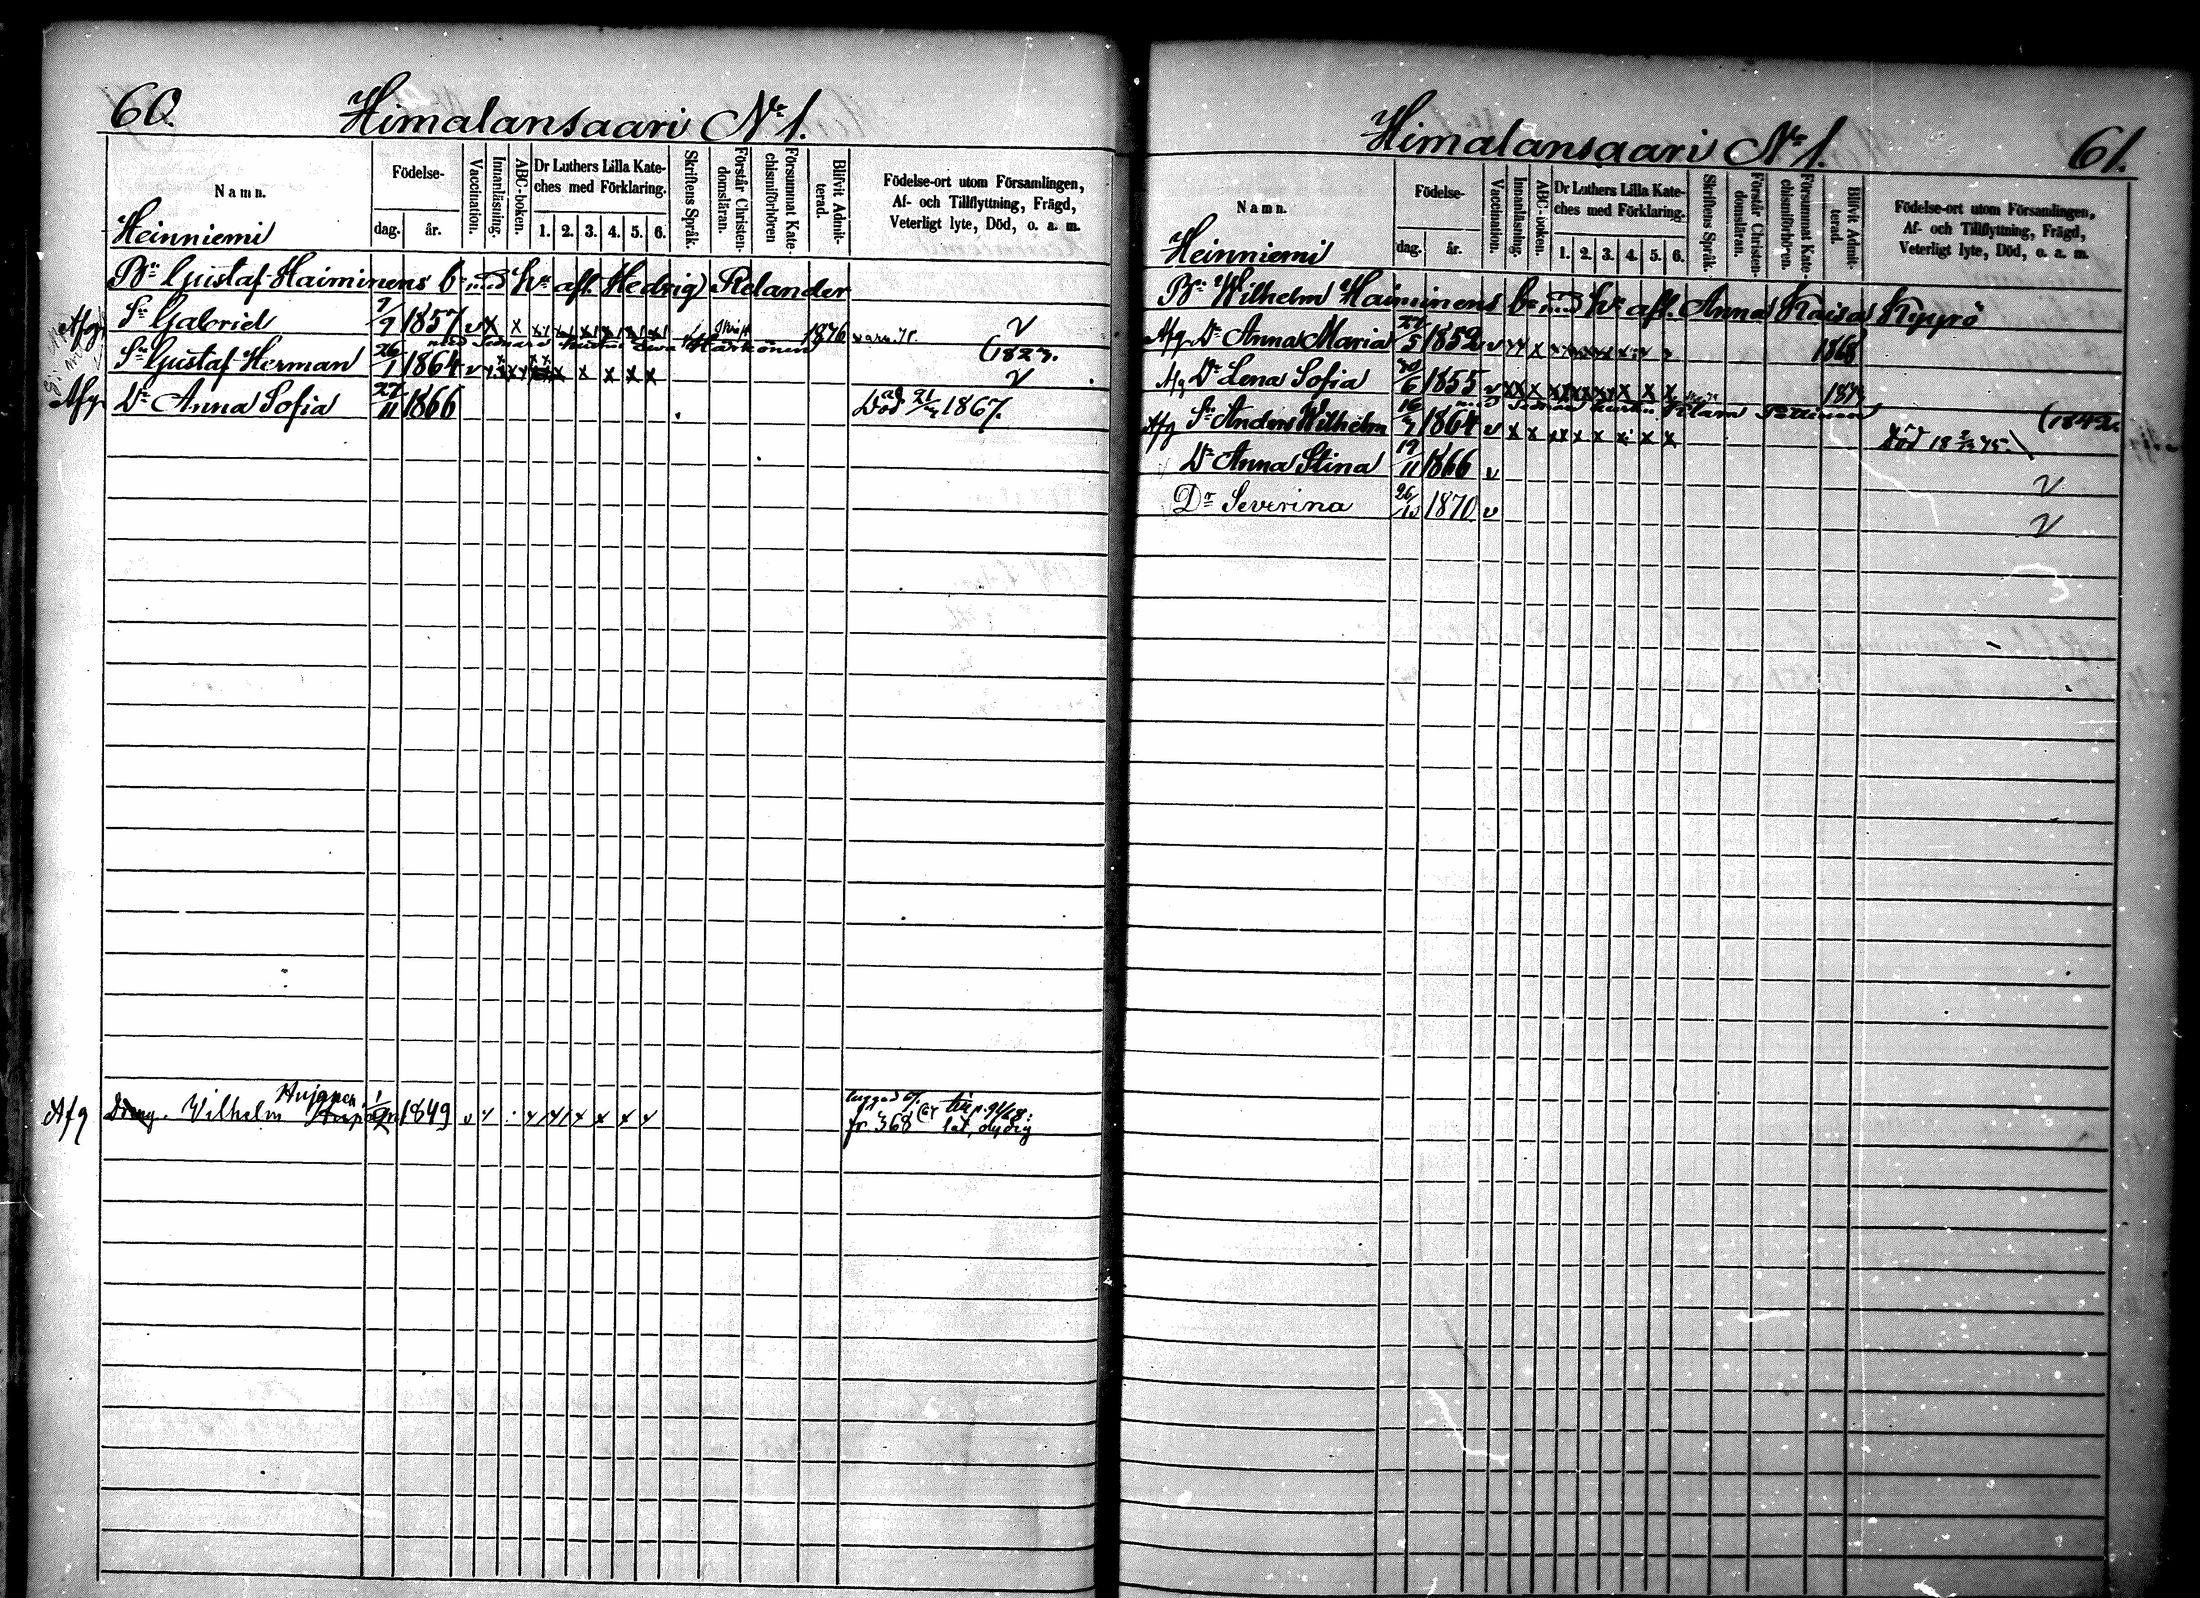 60.
Himalansaari No 1.
Namn.
Födelse-
dag.
år.
Vaccination.
Innanläsning.
ABC-boken.
Dr Luthers Lilla Kate-
ches med Förklaring.
1. 2. 3. 4. 5. 6.
Skriftens Språk.
Förstår Christen-
domsläran.
Försummat Kate-
chismiförhören
Blifvit Admit-
terad.
Födelse-ort utom Församlingen,
Af- och Tillflyttning, Frägd,
Veterligt lyte, Död, o. a. m.
Heinniemi
Bn Gustaf Haiminens b. med h. afl. Hedvig Relander
Afg. Sn Gabriel 7/9 1857 v x x 1876
med sednare hustru Eva Härkönen (1827.
Sn Gustaf Herman 26/1 1864 v x x x x x x
Afg. Dr Anna Sofia 27/11 1866 Död 21/4 1867.
Afg Dreng. Vilhelm Hujanen 1849
fr. 368
61.
Himalansaari No 1.
Namn.
Födelse-
dag.
år.
Vaccination.
Innanläsning.
ABC-boken.
Dr Luthers Lilla Kate-
ches med Förklaring.
1. 2. 3. 4. 5. 6.
Skriftens Språk.
Förstår Christen-
domsläran.
Försummat Kate-
chismiförhören.
Blifvit Admit-
terad.
Födelse-ort utom Församlingen,
Af- och Tillflyttning, Frägd,
Veterligt lyte, Död, o. a. m.
Heinniemi
Bn Wilhelm Haiminens b. med h. afl. Anna Kaisa Kyyrö
Afg Dr Anna Maria 27/5 1852 v 1868
Afg Dr Lena Sofia 30/6 1855 v 1873
med sednare hustru Pöllänen (1842.
Afg Sn Anders Wilhelm 16/7 1864 v x x x x x x x x Död 18 75.
Dr Anna Stina 19/11 1866 v
Dr Severina 26/10 1870 v